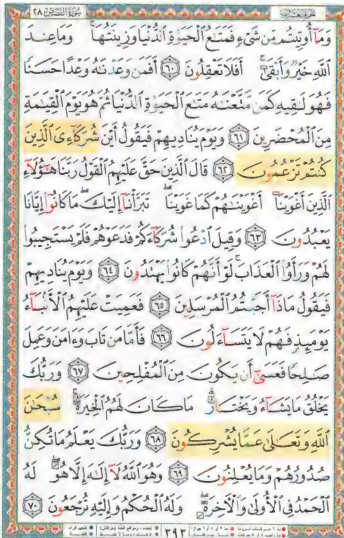 سورة القصص ٢٨
وَمَآ أُوتِيتُم مِّن شَىْءٍ فَمَتَٰعُ ٱلْحَيَوٰةِ ٱلدُّنْيَا وَزِينَتُهَا ۚ وَمَا عِندَ
ٱللَّهِ خَيْرٌ وَأَبْقَىٰٓ ۚ أَفَلَا تَعْقِلُونَ ٦٠ أَفَمَن وَعَدْنَٰهُ وَعْدًا حَسَنًا
فَهُوَ لَٰقِيهِ كَمَن مَّتَّعْنَٰهُ مَتَٰعَ ٱلْحَيَوٰةِ ٱلدُّنْيَا ثُمَّ هُوَ يَوْمَ ٱلْقِيَٰمَةِ
مِنَ ٱلْمُحْضَرِينَ ٦١ وَيَوْمَ يُنَادِيهِمْ فَيَقُولُ أَيْنَ شُرَكَآءِىَ ٱلَّذِينَ
كُنتُمْ تَزْعُمُونَ ٦٢ قَالَ ٱلَّذِينَ حَقَّ عَلَيْهِمُ ٱلْقَوْلُ رَبَّنَا هَٰٓؤُلَآءِ
ٱلَّذِينَ أَغْوَيْنَآ أَغْوَيْنَٰهُمْ كَمَا غَوَيْنَا ۖ تَبَرَّأْنَآ إِلَيْكَ ۖ مَا كَانُوٓا۟ إِيَّانَا
يَعْبُدُونَ ٦٣ وَقِيلَ ٱدْعُوا۟ شُرَكَآءَكُمْ فَدَعَوْهُمْ فَلَمْ يَسْتَجِيبُوا۟
لَهُمْ وَرَأَوُا۟ ٱلْعَذَابَ ۚ لَوْ أَنَّهُمْ كَانُوا۟ يَهْتَدُونَ ٦٤ وَيَوْمَ يُنَادِيهِمْ
فَيَقُولُ مَاذَآ أَجَبْتُمُ ٱلْمُرْسَلِينَ ٦٥ فَعَمِيَتْ عَلَيْهِمُ ٱلْأَنۢبَآءُ
يَوْمَئِذٍ فَهُمْ لَا يَتَسَآءَلُونَ ٦٦ فَأَمَّا مَن تَابَ وَءَامَنَ وَعَمِلَ
صَٰلِحًا فَعَسَىٰٓ أَن يَكُونَ مِنَ ٱلْمُفْلِحِينَ ٦٧ وَرَبُّكَ
يَخْلُقُ مَا يَشَآءُ وَيَخْتَارُ ۗ مَا كَانَ لَهُمُ ٱلْخِيَرَةُ ۚ سُبْحَٰنَ
ٱللَّهِ وَتَعَٰلَىٰ عَمَّا يُشْرِكُونَ ٦٨ وَرَبُّكَ يَعْلَمُ مَا تُكِنُّ
صُدُورُهُمْ وَمَا يُعْلِنُونَ ٦٩ وَهُوَ ٱللَّهُ لَآ إِلَٰهَ إِلَّا هُوَ ۖ لَهُ
ٱلْحَمْدُ فِى ٱلْأُولَىٰ وَٱلْءَاخِرَةِ ۖ وَلَهُ ٱلْحُكْمُ وَإِلَيْهِ تُرْجَعُونَ ٧٠
٣٩٣